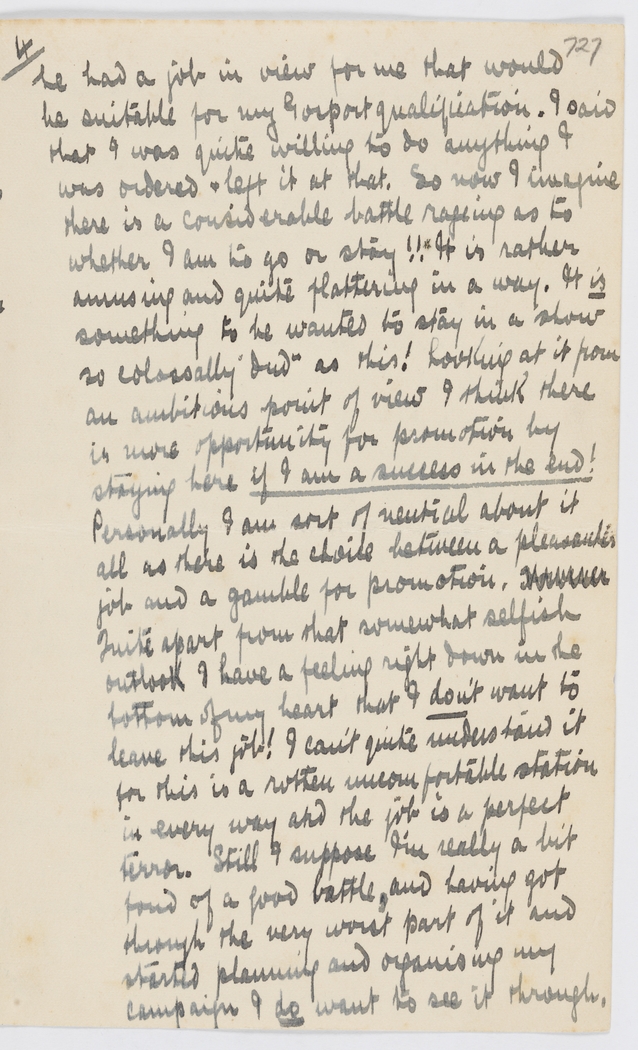 4/
727
he had a job in view for me that would
be suitable for my Gosport qualification. I said
that I was quite willing to do anything I
was ordered & left it at that. So now I imagine
there is a considerable battle raging as to
whether I am to go or stay!! It is rather
amusing and quite flattering in a way. It is
something to be wanted to stay in a show
so colossally "dud" as this! Looking at it from
an ambitious point of view I think there
is more opportunity for promotion by
staying here if I am a success in the end!
Personally I am sort of neutral about it
all as there is the choice between a pleasanter
job and a gamble for promotion.
Quite apart from that somewhat selfish
outlook I have a feeling right down in the
bottom of my heart that I don't want to
leave this job! I can't quite understand it
for this is a rotten uncomfortable station
in every way and the job is a perfect
terror. Still I suppose I'm really a bit
fond of a good battle, and having got
through the very worst part of it and
started planning and organising my
campaign I do want to see it through.